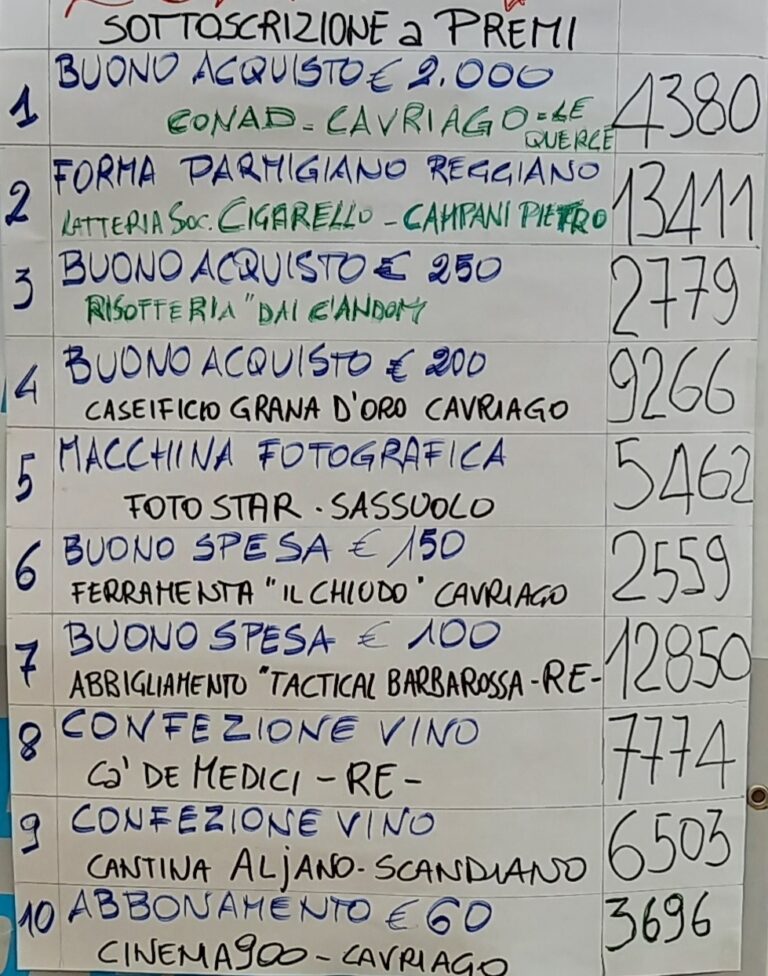 SOTTOSCRIZIONE a PREMI
1 BUONO ACQUISTO € 2.000 4380
CONAD - CAVRIAGO = LE
QUERCE
2 FORMA PARMIGIANO REGGIANO 13411
LATTERIA SOC. CIGARELLO - CAMPANI PIETRO
3 BUONO ACQUISTO € 250 2779
RISOTTERIA "DAI C'ANDOM
4 BUONO ACQUISTO € 200 9266
CASEIFICIO GRANA D'ORO CAVRIAGO
5 MACCHINA FOTOGRAFICA 5462
FOTO STAR - SASSUOLO
6 BUONO SPESA € 150 2559
FERRAMENTA "IL CHIODO" CAVRIAGO
7 BUONO SPESA € 100 12850
ABBIGLIAMENTO "TACTICAL BARBAROSSA -RE-
8 CONFEZIONE VINO 7774
Ca' DE MEDICI - RE -
9 CONFEZIONE VINO 6503
CANTINA ALjANO - SCANDIANO
10 ABBONAMENTO € 60 3696
CINEMA900 - CAVRIAGO